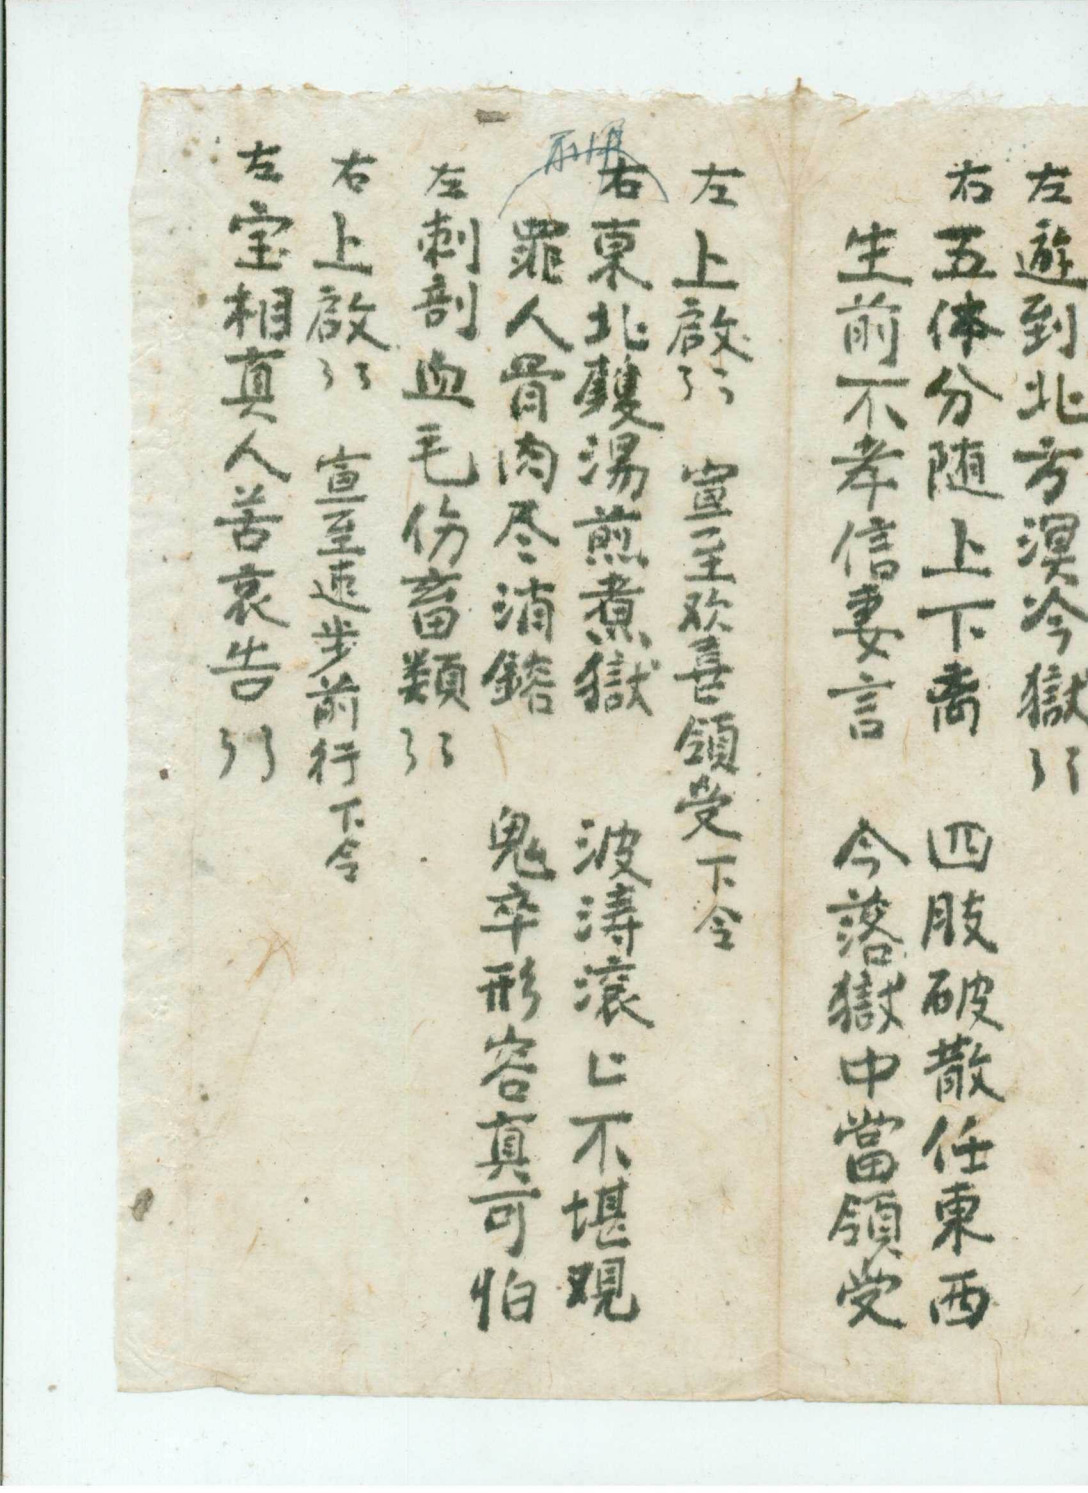 左遊到北方溟冷獄
右五体分随上下离 四肢破散任東西
生前不孝信妻言 今落獄中當領受
左 上啟 宣至欢喜領受下令
右東北鑊湯煎煮獄 波涛滚〻不堪观
罪人骨肉尽消鎔 鬼卒形容真可怕
左刺剖血毛伤畜類
右上啟 宣至速步前行下令
左宝相真人苦哀告